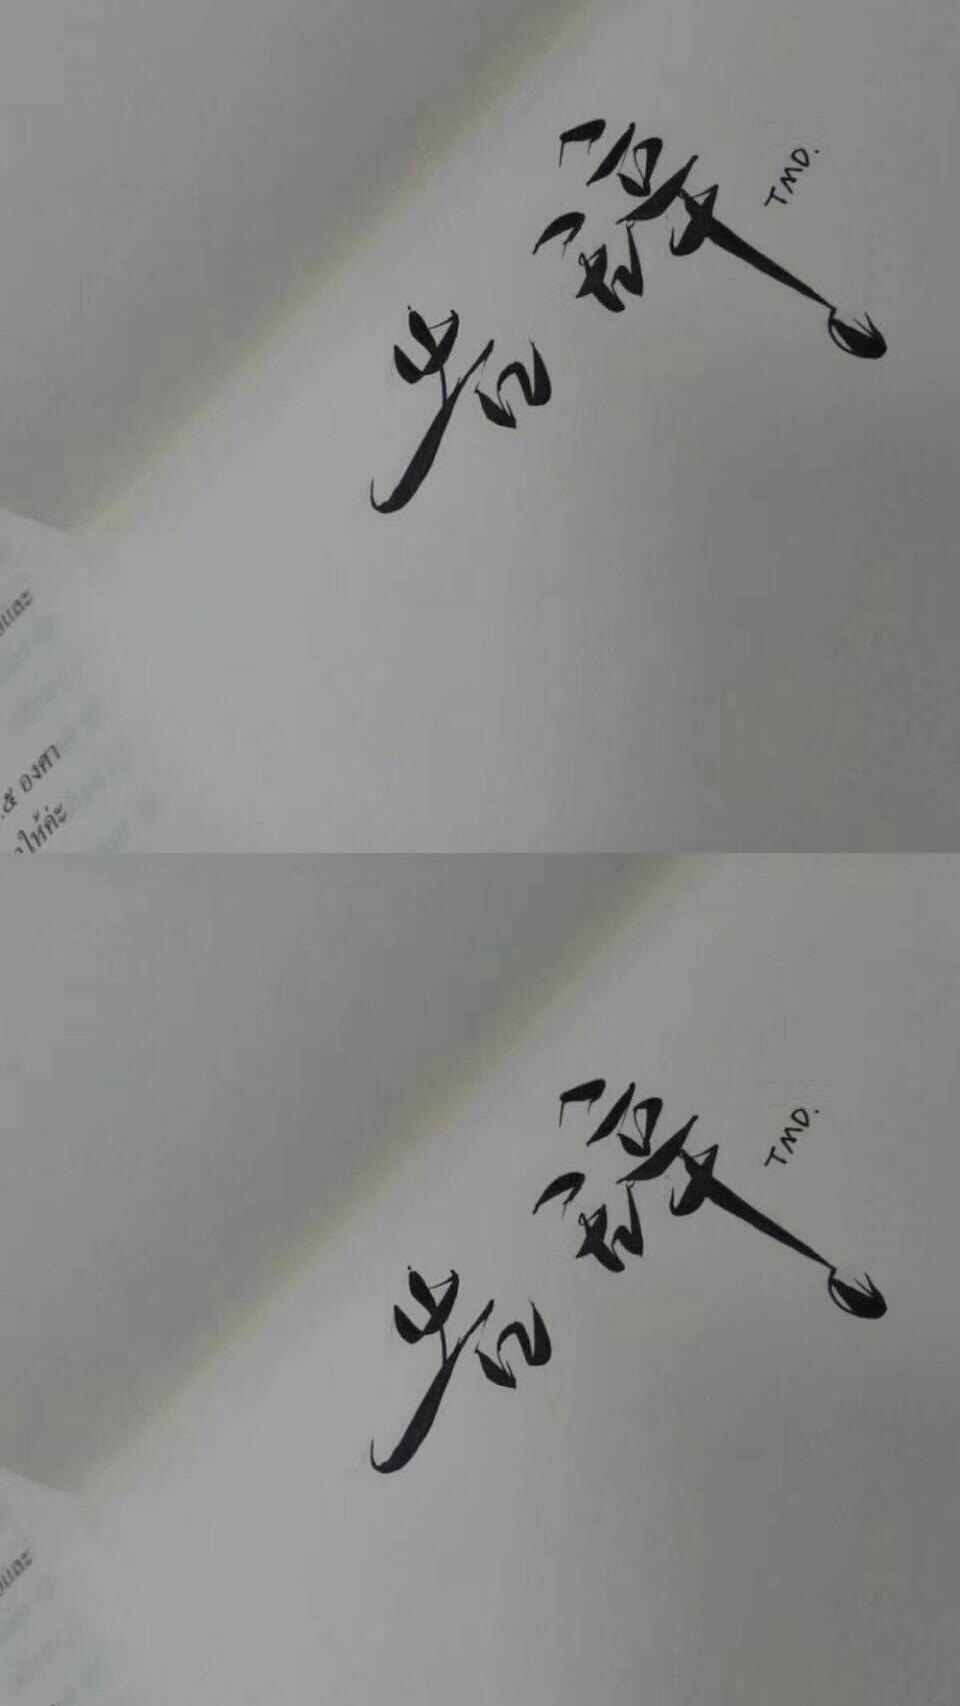 告辞
TMD.
และ
.๕ องศา
ให้ค่ะ
告辞
TMD.
และ